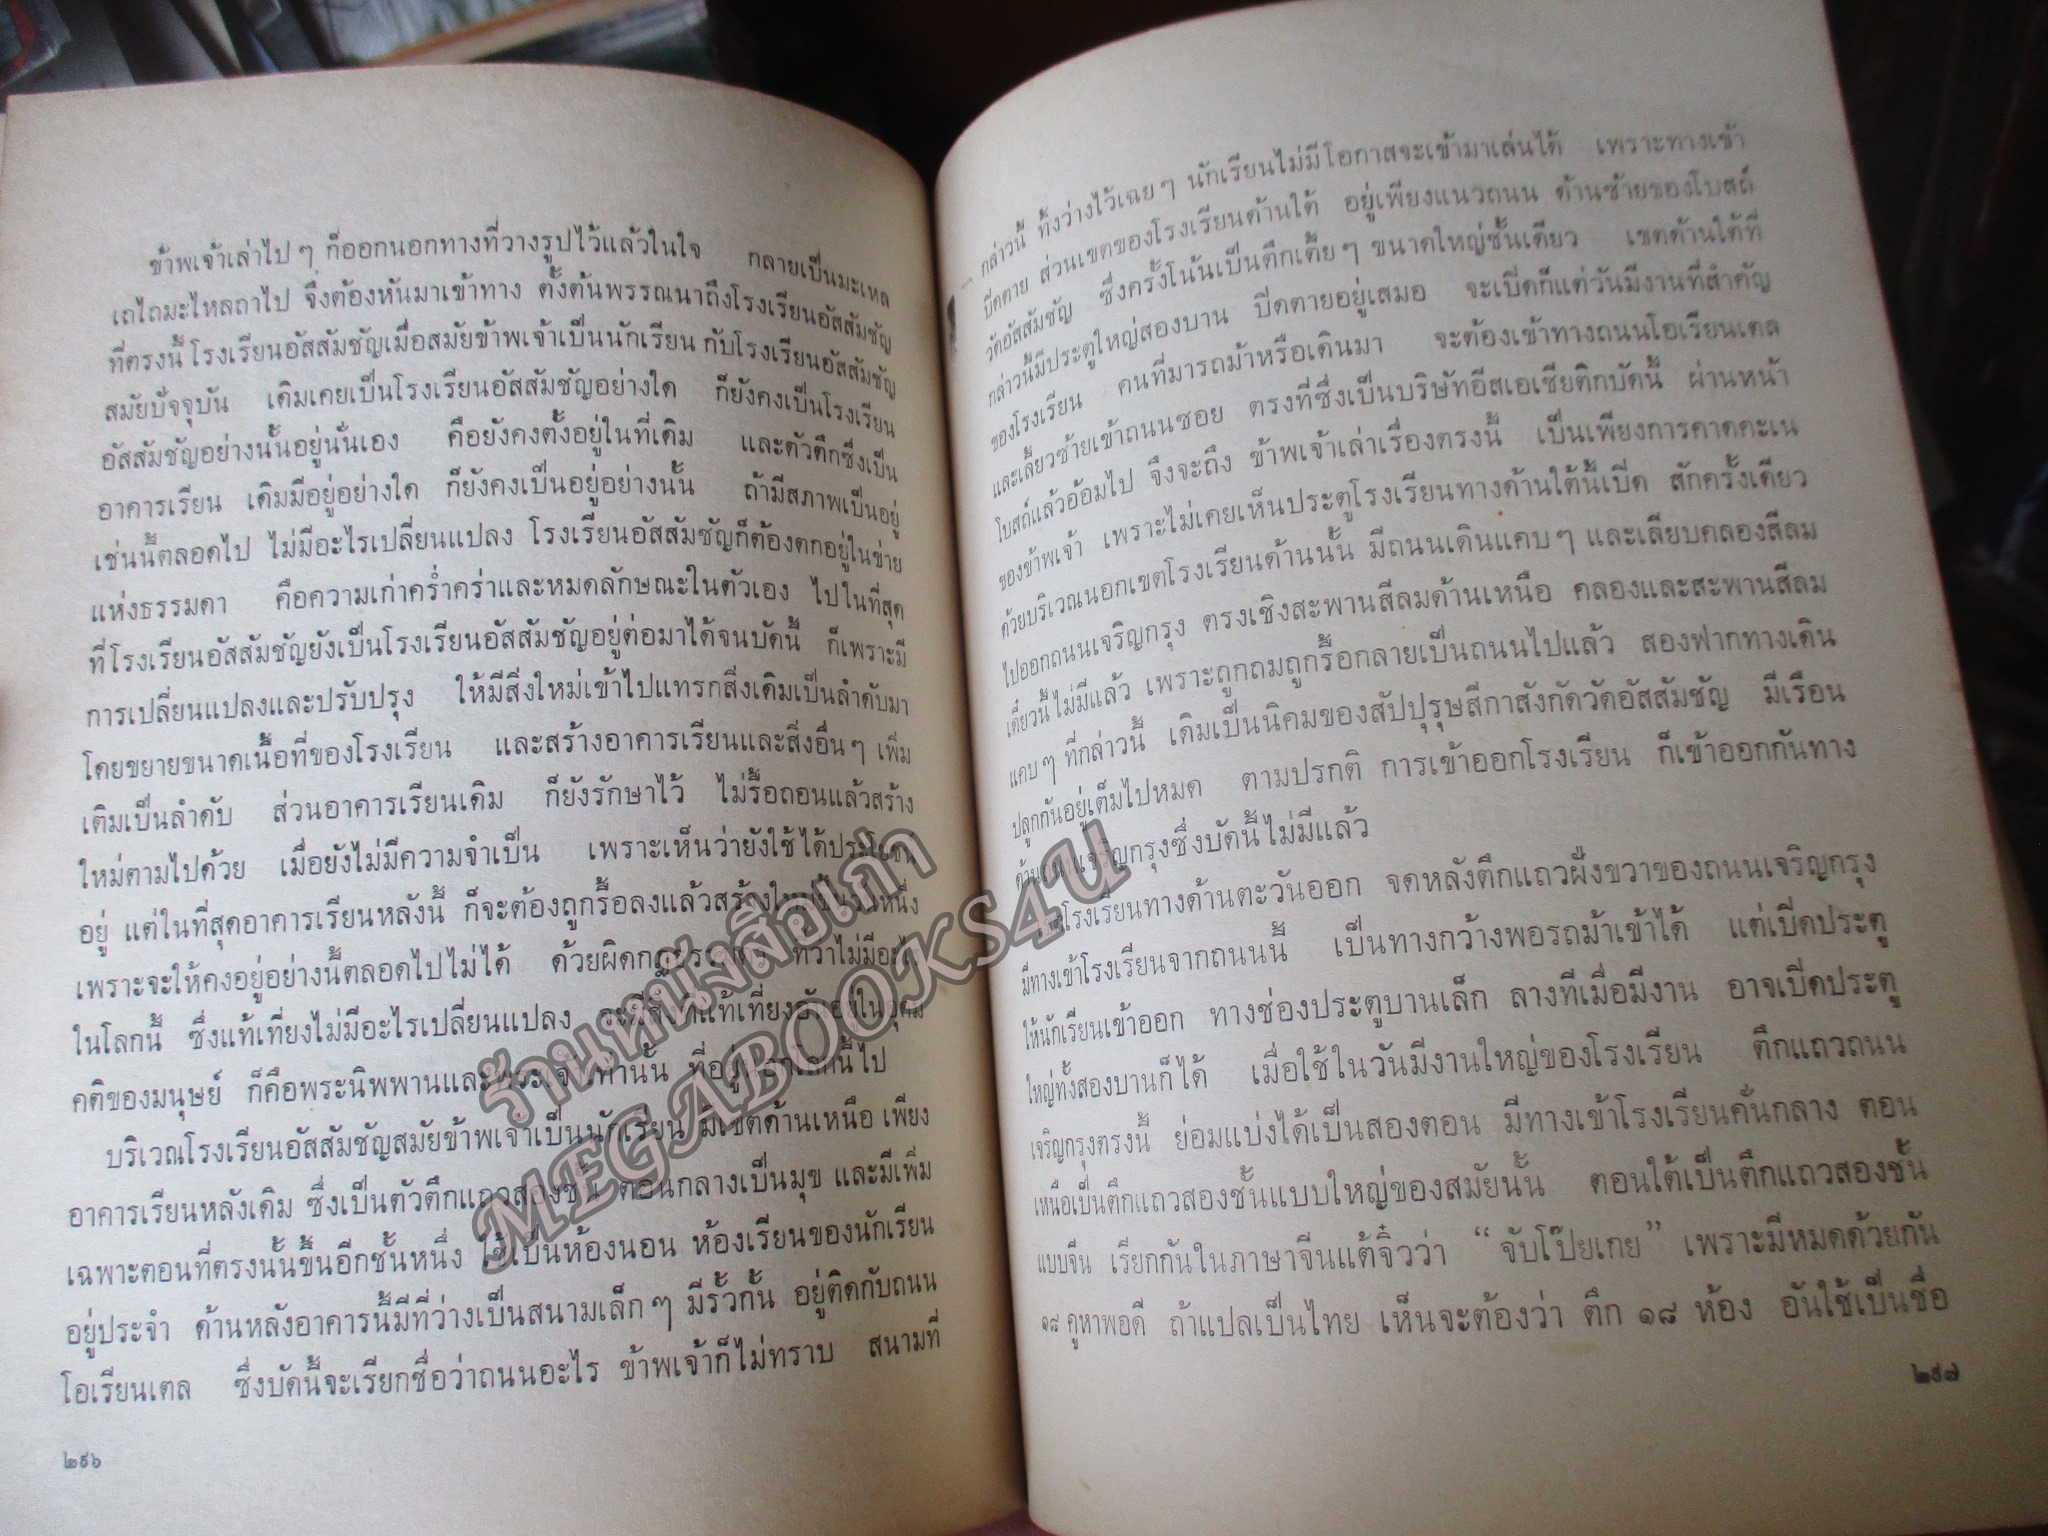 ข้าพเจ้าเล่าไป ๆ ก็ออกนอกทางที่วางรูปไว้แล้วในใจ กลายเป็นมะเหล
เถไถมะไหลถาไป จึงต้องหันมาเข้าทาง ตั้งต้นพรรณนาถึงโรงเรียนอัสสัมชัญ
ที่ตรงนี้ โรงเรียนอัสสัมชัญเมื่อสมัยข้าพเจ้าเป็นนักเรียน กับโรงเรียนอัสสัมชัญ
สมัยปัจจุบัน เดิมเคยเป็นโรงเรียนอัสสัมชัญอย่างใด ก็ยังคงเป็นโรงเรียน
อัสสัมชัญอย่างนั้นอยู่นั่นเอง คือยังคงตั้งอยู่ในที่เดิม และตัวตึกซึ่งเป็น
อาคารเรียน เดิมมีอยู่อย่างใด ก็ยังคงเป็นอยู่อย่างนั้น ถ้ามีสภาพเป็นอยู่
เช่นนี้ตลอดไป ไม่มีอะไรเปลี่ยนแปลง โรงเรียนอัสสัมชัญก็ต้องตกอยู่ในข่าย
แห่งธรรมดา คือความเก่าคร่ำคร่าและหมดลักษณะในตัวเอง ไปในที่สุด
ที่โรงเรียนอัสสัมชัญยังเป็นโรงเรียนอัสสัมชัญอยู่ต่อมาได้จนบัดนี้ ก็เพราะมี
การเปลี่ยนแปลงและปรับปรุง ให้มีสิ่งใหม่เข้าไปแทรกสิ่งเดิมเป็นลำดับมา
โดยขยายขนาดเนื้อที่ของโรงเรียน และสร้างอาคารเรียนและสิ่งอื่น ๆ เพิ่ม
เติมเป็นลำดับ ส่วนอาคารเรียนเดิม ก็ยังรักษาไว้ ไม่รื้อถอนแล้วสร้าง
ใหม่ตามไปด้วย เมื่อยังไม่มีความจำเป็น เพราะเห็นว่ายังใช้ได้ประโยชน์
อยู่ แต่ในที่สุดอาคารเรียนหลังนี้ ก็จะต้องถูกรื้อลงแล้วสร้างใหม่ขึ้นวันหนึ่ง
เพราะจะให้คงอยู่อย่างนี้ตลอดไปไม่ได้ ด้วยผิดกฎ ที่ว่าไม่มีอะไร
ในโลกนี้ ซึ่งแท้เที่ยงไม่มีอะไรเปลี่ยนแปลง จะมีสิ่งที่แท้เที่ยงอันอยู่ในอุดม
คติของมนุษย์ ก็คือพระนิพพานและพระเจ้าเท่านั้น ที่อยู่นอกโลกนี้ไป
บริเวณโรงเรียนอัสสัมชัญสมัยข้าพเจ้าเป็นนักเรียน มีเขตด้านเหนือ เพียง
อาคารเรียนหลังเดิม ซึ่งเป็นตัวตึกแถวสองชั้น ตอนกลางเป็นมุข และมีเพิ่ม
เฉพาะตอนที่ตรงนั้นขึ้นอีกชั้นหนึ่ง ใช้เป็นห้องนอน ห้องเรียนของนักเรียน
อยู่ประจำ ด้านหลังอาคารนี้มีที่ว่างเป็นสนามเล็ก ๆ มีรั้วกั้น อยู่ติดกับถนน
โอเรียนเตล ซึ่งบัดนี้จะเรียกชื่อว่าถนนอะไร ข้าพเจ้าก็ไม่ทราบ สนามที่
๒๙๖
กล่าวนี้ ทิ้งว่างไว้เฉย ๆ นักเรียนไม่มีโอกาสจะเข้ามาเล่นได้ เพราะทางเข้า
ปิดตาย ส่วนเขตของโรงเรียนด้านใต้ อยู่เพียงแนวถนน ด้านซ้ายของโบสถ์
วัดอัสสัมชัญ ซึ่งครั้งโน้นเป็นตึกเตี้ย ๆ ขนาดใหญ่ชั้นเดียว เขตด้านใต้ที่
กล่าวนี้มีประตูใหญ่สองบาน ปิดตายอยู่เสมอ จะเปิดก็แต่วันมีงานที่สำคัญ
ของโรงเรียน คนที่มารถม้าหรือเดินมา จะต้องเข้าทางถนนโอเรียนเตล
และเลี้ยวซ้ายเข้าถนนซอย ตรงที่ซึ่งเป็นบริษัทอีสเอเชียติกบัดนี้ ผ่านหน้า
โบสถ์แล้วอ้อมไป จึงจะถึง ข้าพเจ้าเล่าเรื่องตรงนี้ เป็นเพียงการคาดคะเน
ของข้าพเจ้า เพราะไม่เคยเห็นประตูโรงเรียนทางด้านใต้นี้เปิด สักครั้งเดียว
ด้วยบริเวณนอกเขตโรงเรียนด้านนั้น มีถนนเดินแคบ ๆ และเลียบคลองสีลม
ไปออกถนนเจริญกรุง ตรงเชิงสะพานสีลมด้านเหนือ คลองและสะพานสีลม
เดี๋ยวนี้ไม่มีแล้ว เพราะถูกถมถูกรื้อกลายเป็นถนนไปแล้ว สองฟากทางเดิน
แคบ ๆ ที่กล่าวนี้ เดิมเป็นนิคมของสัปปุรุษสีกาสังกัดวัดอัสสัมชัญ มีเรือน
ปลูกกันอยู่เต็มไปหมด ตามปรกติ การเข้าออกโรงเรียน ก็เข้าออกกันทาง
ด้านถนนเจริญกรุงซึ่งบัดนี้ไม่มีแล้ว
โรงเรียนทางด้านตะวันออก จดหลังตึกแถวฝั่งขวาของถนนเจริญกรุง
มีทางเข้าโรงเรียนจากถนนนี้ เป็นทางกว้างพอรถม้าเข้าได้ แต่เปิดประตู
ให้นักเรียนเข้าออก ทางช่องประตูบานเล็ก ลางทีเมื่อมีงาน อาจเปิดประตู
ใหญ่ทั้งสองบานก็ได้ เมื่อใช้ในวันมีงานใหญ่ของโรงเรียน ตึกแถวถนน
เจริญกรุงตรงนี้ ย่อมแบ่งได้เป็นสองตอน มีทางเข้าโรงเรียนคั่นกลาง ตอน
เหนือเป็นตึกแถวสองชั้นแบบใหญ่ของสมัยนั้น ตอนใต้เป็นตึกแถวสองชั้น
แบบจีน เรียกกันในภาษาจีนแต้จิ๋วว่า “จับโป๊ยเกย” เพราะมีหมดด้วยกัน
๑๘ คูหาพอดี ถ้าแปลเป็นไทย เห็นจะต้องว่า ตึก ๑๘ ห้อง อันใช้เป็นชื่อ
๒๙๗
ร้านหนังสือเก่า
MEGABOOKS4U